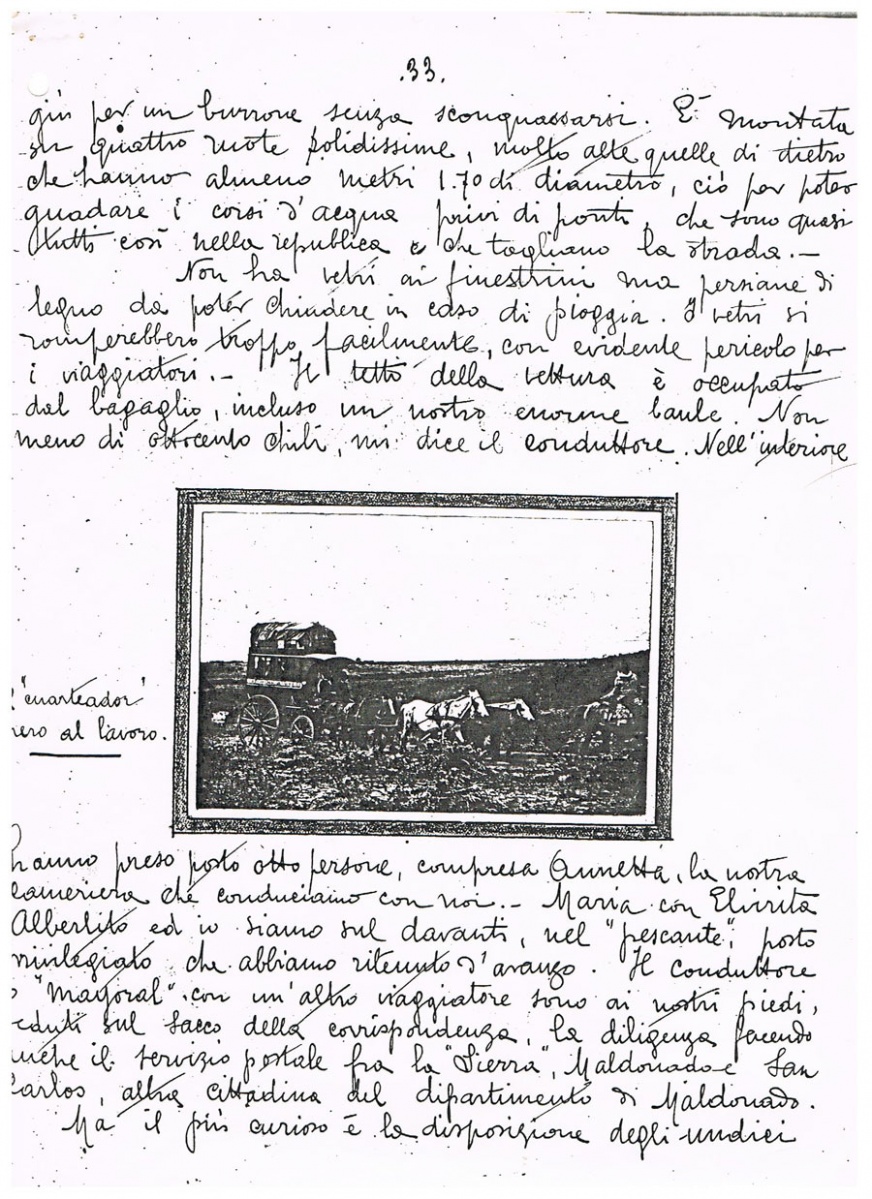 .33.
giù per un burrone senza sconquassarsi. È montata
su quattro ruote solidissime, molto alte quelle di dietro
che hanno almeno metri 1.70 di diametro, ciò per poter
guadare i corsi d'acqua privi di ponti, che sono quasi
tutti così nella republica e che tagliano la strada.-
Non ha vetri ai finestrini ma persiane di
legno da poter chiudere in caso di pioggia. I vetri si
romperebbero troppo facilmente, con evidente pericolo per
i viaggiatori.- Il tetto della vettura è occupato
dal bagaglio, incluso un nostro enorme baule. Non
meno di ottocento chili, mi dice il conduttore. Nell'interiore
"cuarteador"
nero al lavoro.
hanno preso posto otto persone, compresa Annetta, la nostra
cameriera che conduciamo con noi.- Maria con Elvirita
Albertito ed io siamo sul davanti, nel "pescante", posto
privilegiato che abbiamo ritenuto d'avanzo. Il conduttore
o "Mayoral" con un'altro viaggiatore sono ai nostri piedi,
seduti sul sacco della corrispondenza, la diligenza facendo
anche il servizio postale fra la "Sierra", Maldonado e San
Carlos, altra cittadina del dipartimento di Maldonado.
Ma il più curioso è la disposizione degli undici